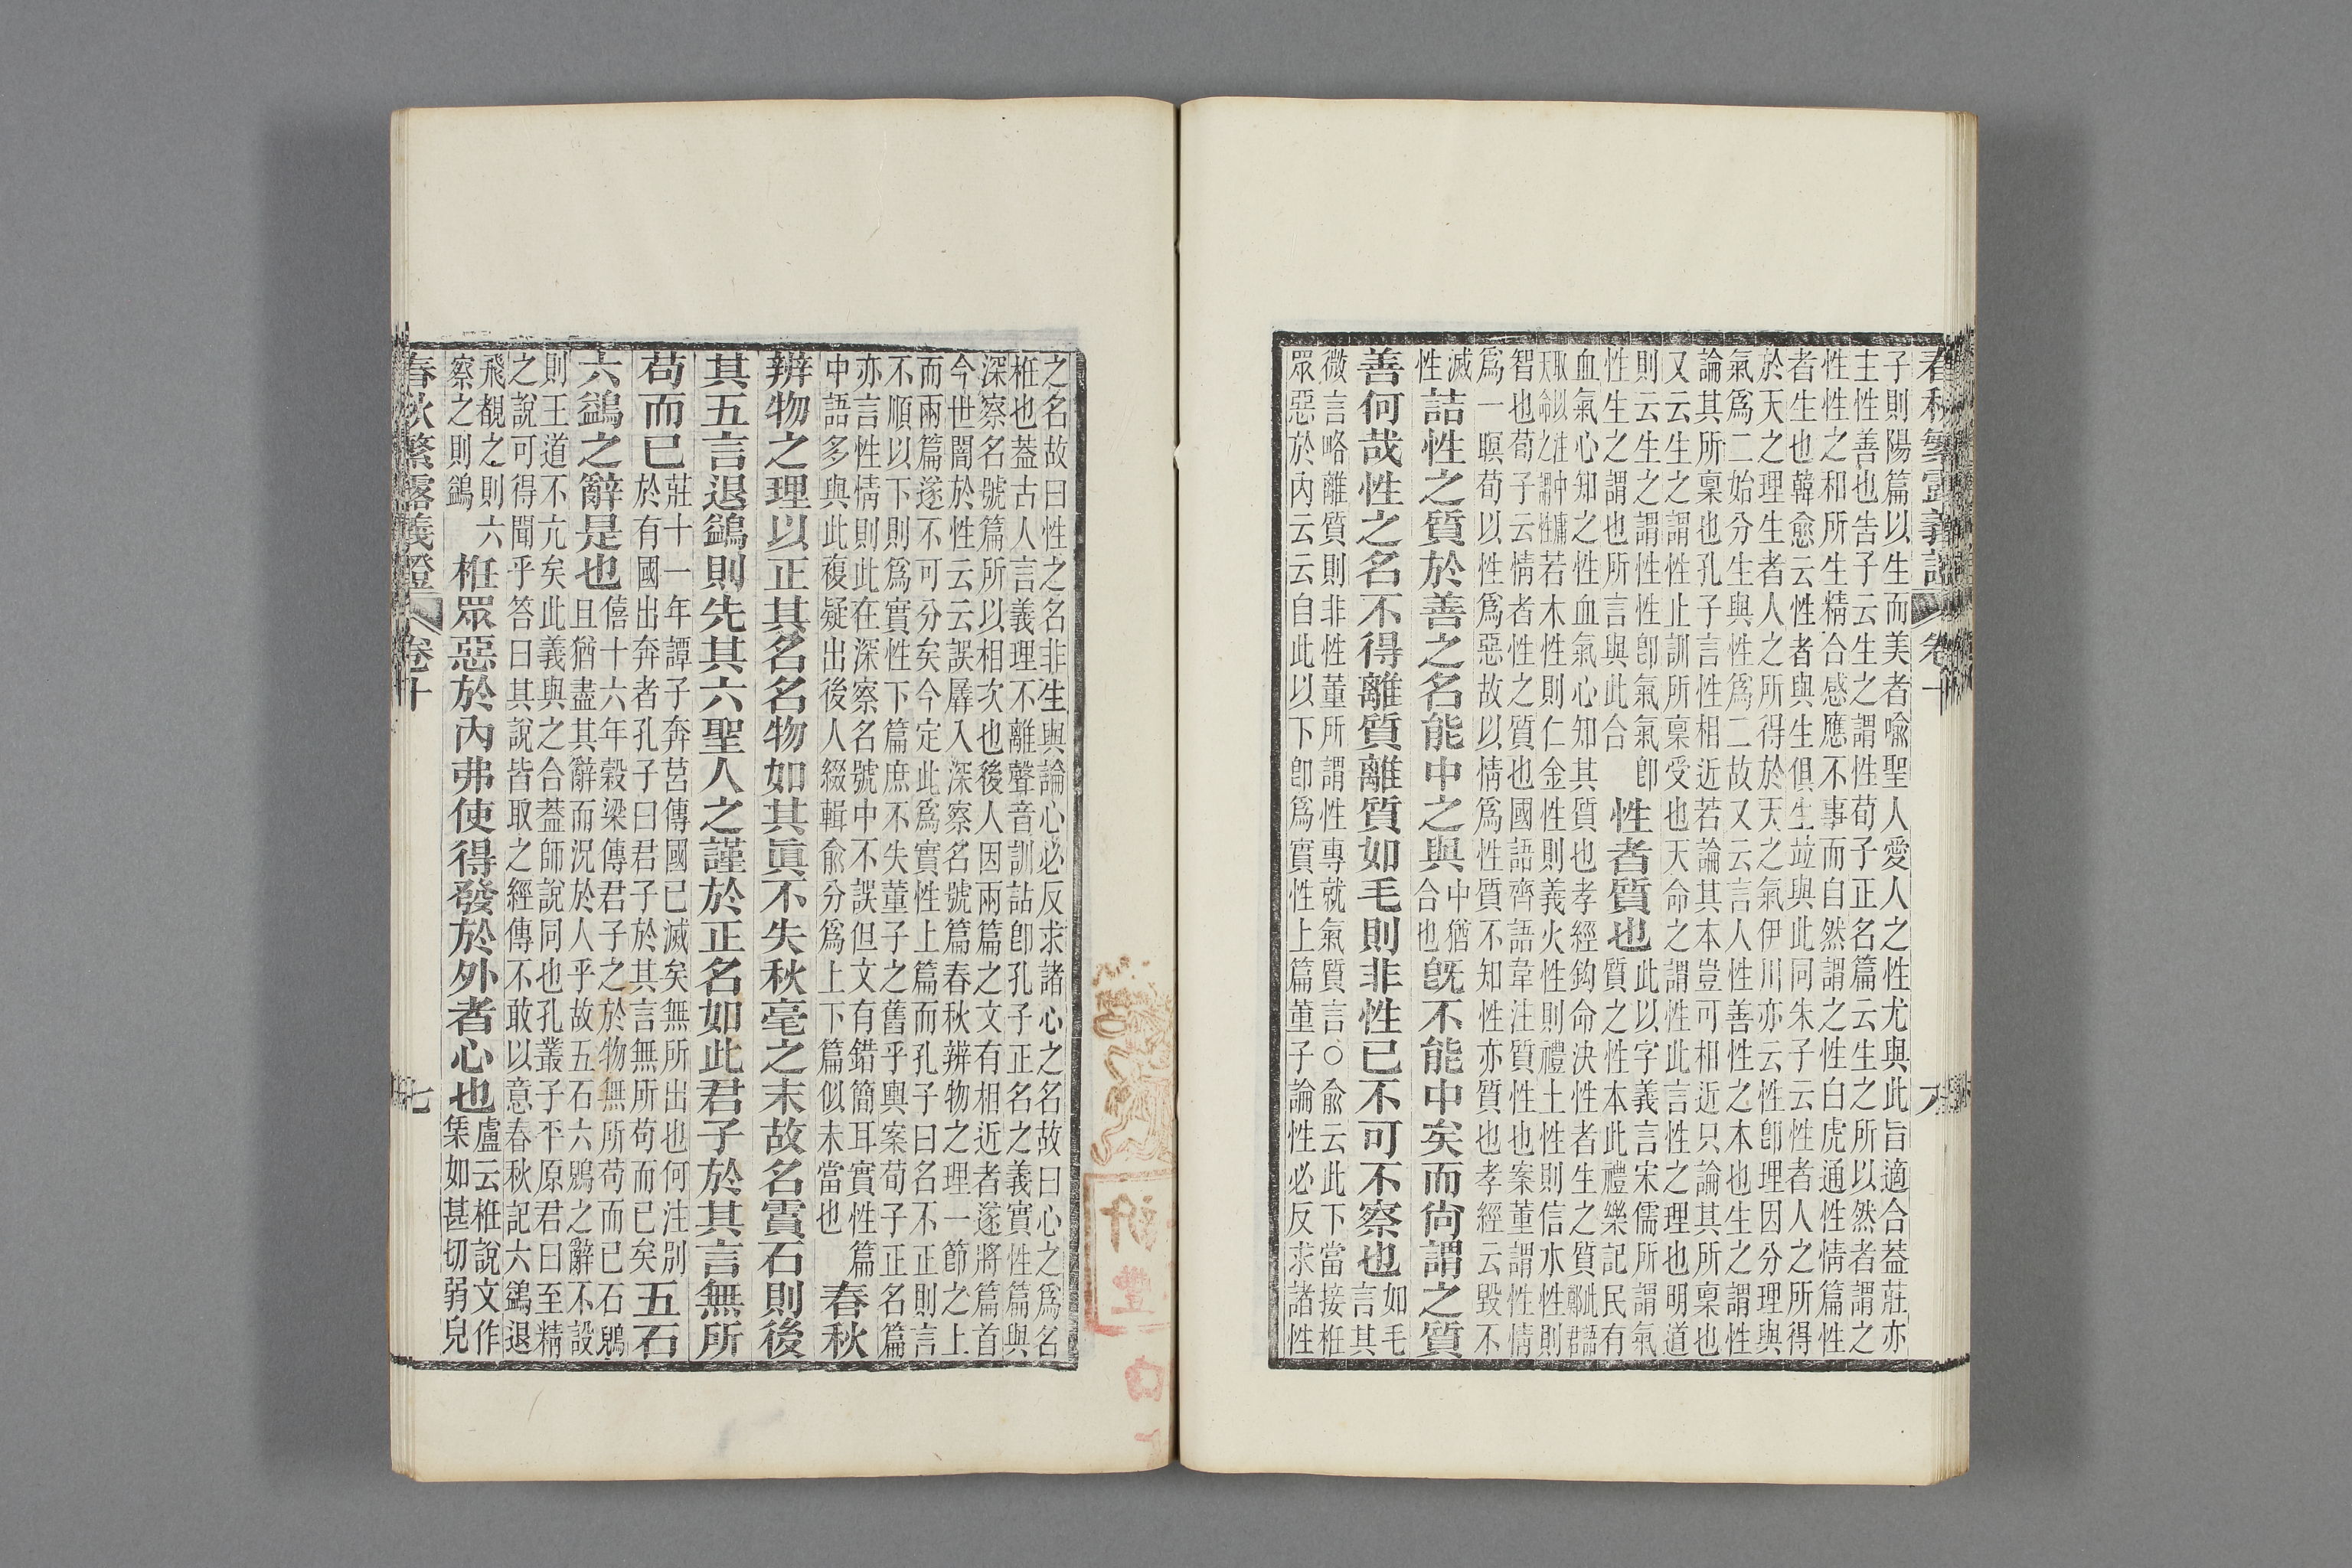 春秋繁露義證 卷十
子則陽篇以生而美者喻聖人愛人之性尤與此旨適合蓋莊亦
主性善也告子云生之謂性荀子正名篇云生之所以然者謂之
性性之和所生精合感應不事而自然謂之性白虎通性情篇性
者生也韓愈云性者與生俱生竝與此同朱子云性者人之所得
於天之理生者人之所得於天之氣伊川亦云性卽理因分理與
氣爲二始分生與性爲二故又云言人性善性之本也生之謂性
論其所稟也孔子言性相近若論其本豈可相近只論其所稟也
又云生之謂性止訓所稟受也天命之謂性此言性之理也明道
則云生之謂性性卽氣氣卽
性生之謂也所言與此合
性者質也
此以字義言宋儒所謂氣
質之性本此禮樂記民有
血氣心知之性血氣心知其質也孝經鈎命決性者生之質
取以注中庸
天命之謂性
若木性則仁金性則義火性則禮土性則信水性則
智也荀子云情者性之質也國語齊語韋注質性也案董謂性情
爲一暝荀以性爲惡故以情爲性質不知性亦質也孝經云毀不
滅
性
詰性之質於善之名能中之與
中猶
合也
旣不能中矣而尙謂之質
善何哉性之名不得離質離質如毛則非性已不可不察也
如毛
言其
微言略離質則非性董所謂性專就氣質言○俞云此下當接栣
眾惡於內云云自此以下卽爲實性上篇董子論性必反求諸性
之名故曰性之名非生與論心必反求諸心之名故曰心之爲名
栣也蓋古人言義理不離聲音訓詁卽孔子正名之義實性篇與
深察名號篇所以相次也後人因兩篇之文有相近者遂將篇首
今世闇於性云云誤羼入深察名號篇春秋辨物之理一節之上
而兩篇遂不可分矣今定此爲實性上篇而孔子曰名不正則言
不順以下則爲實性下篇庶不失董子之舊乎輿案荀子正名篇
亦言性情則此在深察名號中不誤但文有錯簡耳實性篇
中語多與此複疑出後人綴輯俞分爲上下篇似未當也
春秋
辨物之理以正其名名物如其眞不失秋毫之末故名霣石則後
其五言退鷁則先其六聖人之謹於正名如此君子於其言無所
苟而已
莊十一年譚子奔莒傳國已滅矣無所出也何注別
於有國出奔者孔子曰君子於其言無所苟而已矣
五石
六鷁之辭是也
僖十六年穀梁傳君子之於物無所苟而已石鶂
且猶盡其辭而況於人乎故五石六鶂之辭不設
則王道不亢矣此義與之合蓋師說同也孔叢子平原君曰至精
之說可得聞乎答曰其說皆取之經傳不敢以意春秋記六鷁退
飛覩之則六
察之則鷁
栣眾惡於內弗使得發於外者心也
盧云栣說文作
集如甚切弱皃
春秋繁露義證 卷十 七